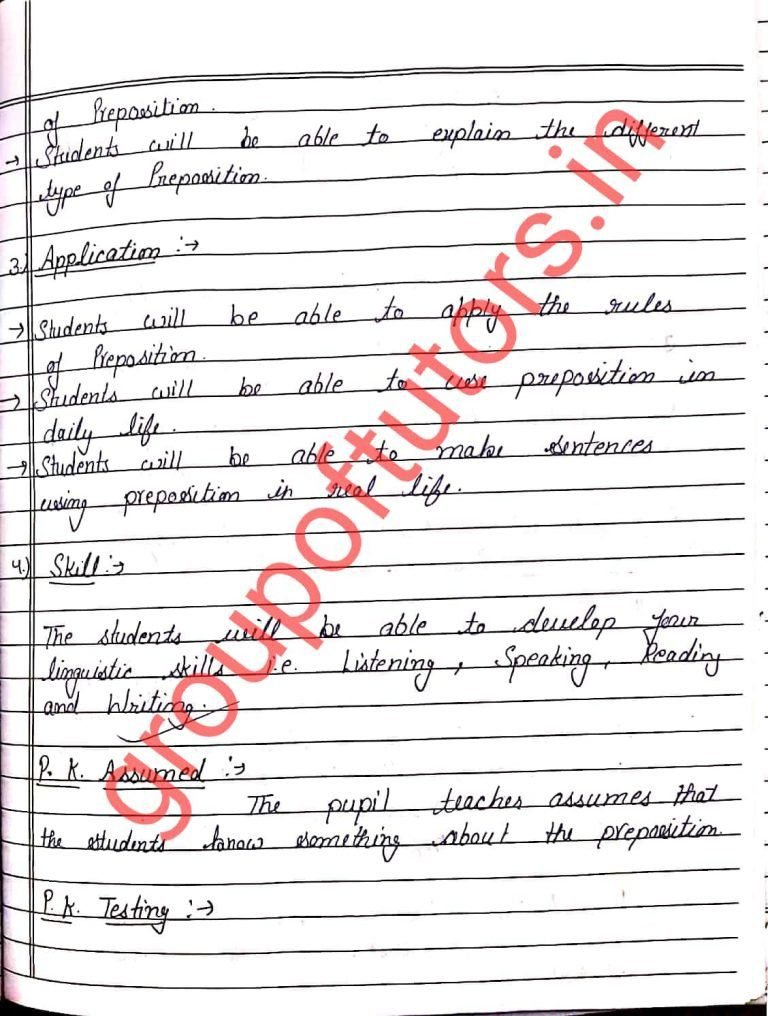 of Preposition.
→ Students will be able to explain the different
type of Preposition.
3.) Application :→
→ Students will be able to apply the rules
of Preposition.
→ Students will be able to use preposition in
daily life.
→ Students will be able to make sentences
using preposition in real life.
4.) Skill :→
The students will be able to develop your
linguistic skills i.e. Listening, Speaking, Reading
and Writing.
P. K. Assumed :→
The pupil teaches assumes that
the students know something about the preposition.
P. K. Testing :→
groupoftutors.in